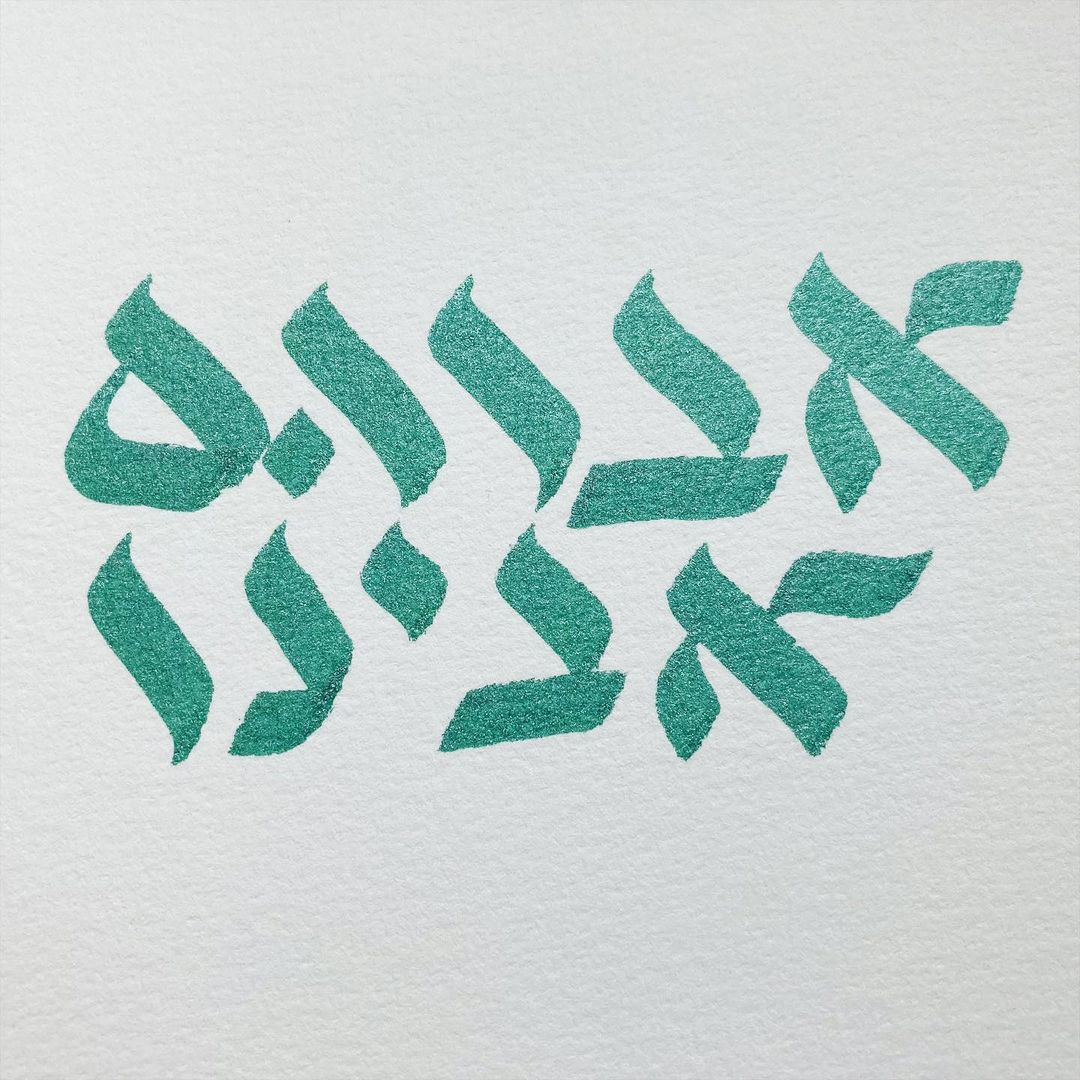 אברהם
אבינו